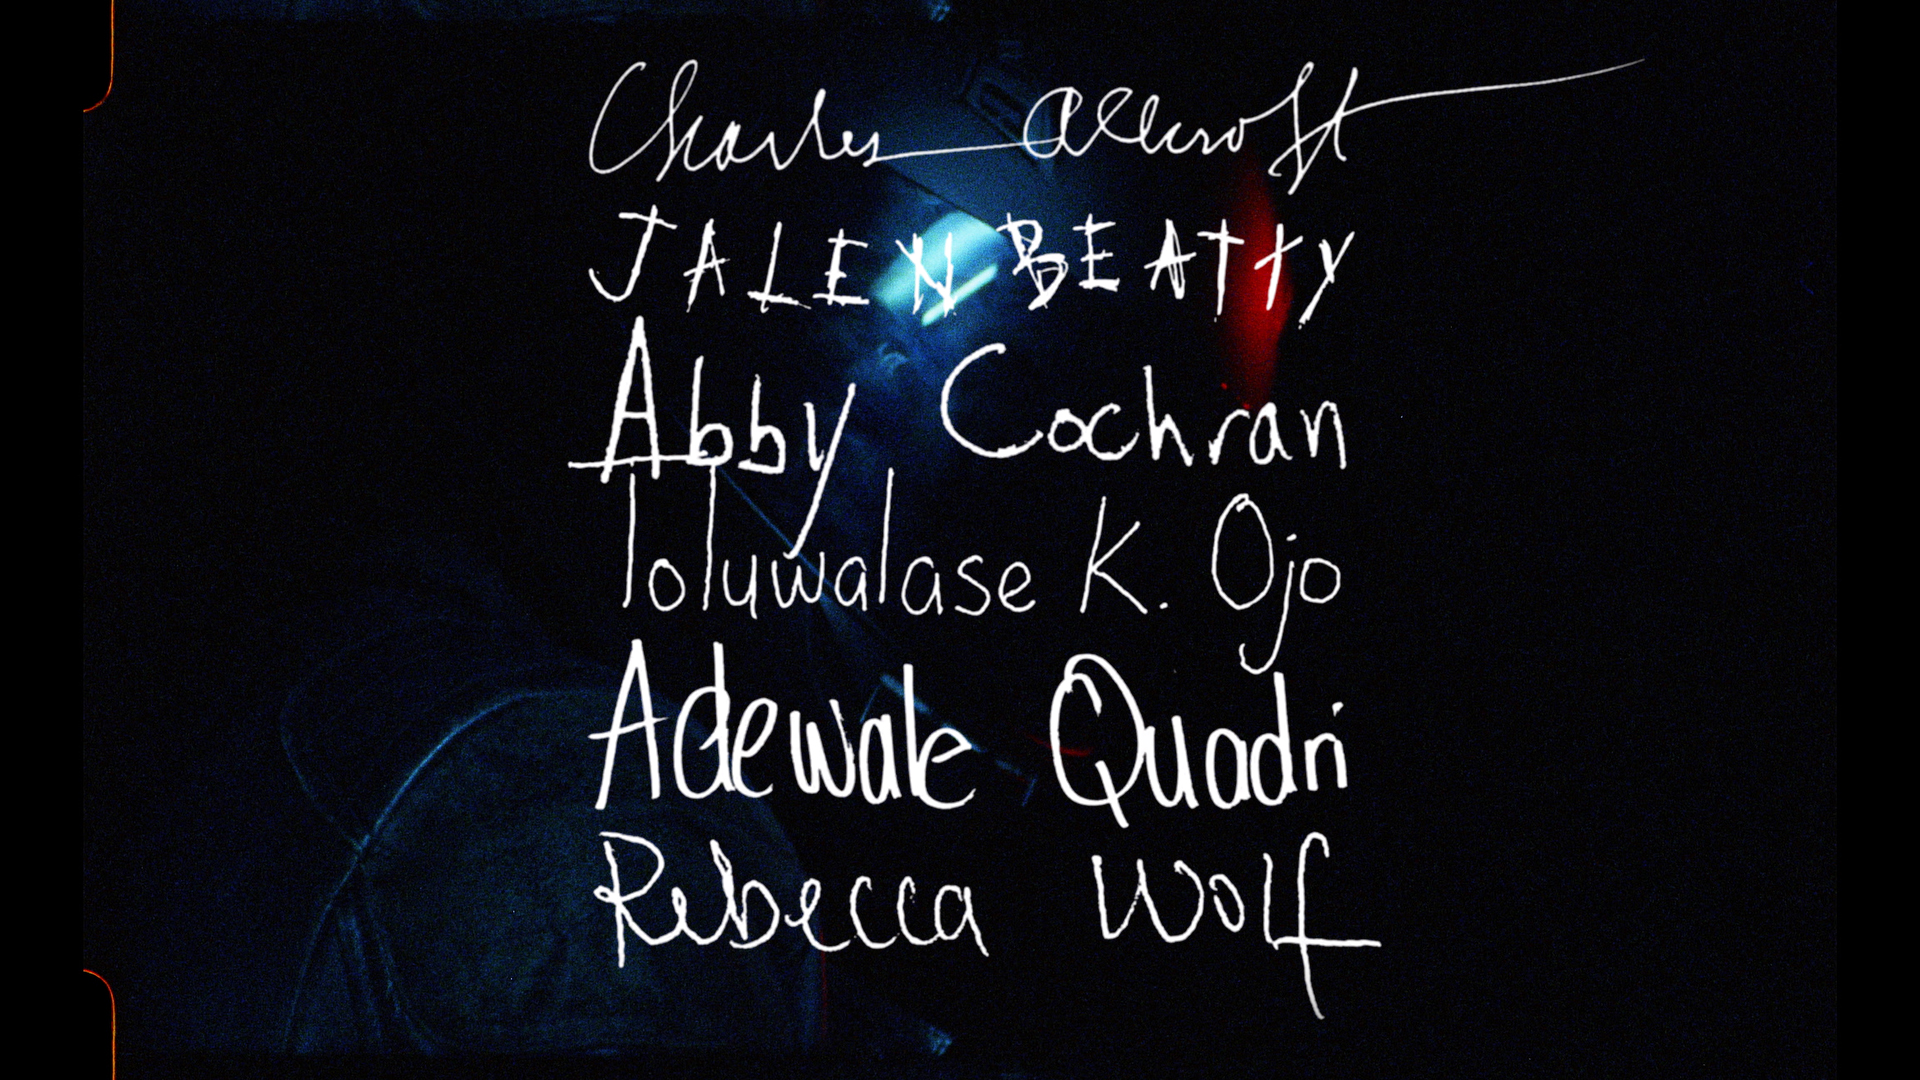 Charles Allcroft
JALEN BEATTY
Abby Cochran
Toluwalase K. Ojo
Adewale Quadri
Rebecca Wolf